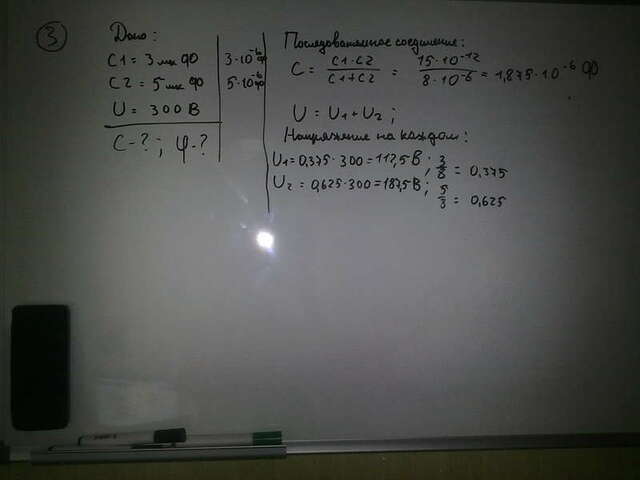 3
Дано:
C1 = 3 мк Ф
C2 = 5 мк Ф
U = 300 В
C-?; φ-?
3·10⁻⁶ Ф
5·10⁻⁶ Ф
Последовательное соединение:
C = C1·C2 / C1+C2 = 15·10⁻¹² / 8·10⁻⁶ = 1,875·10⁻⁶ Ф
U = U1 + U2;
Напряжение на каждом:
U1 = 0,375·300 = 112,5 В; 3/8 = 0,375
U2 = 0,625·300 = 187,5 В; 5/8 = 0,625